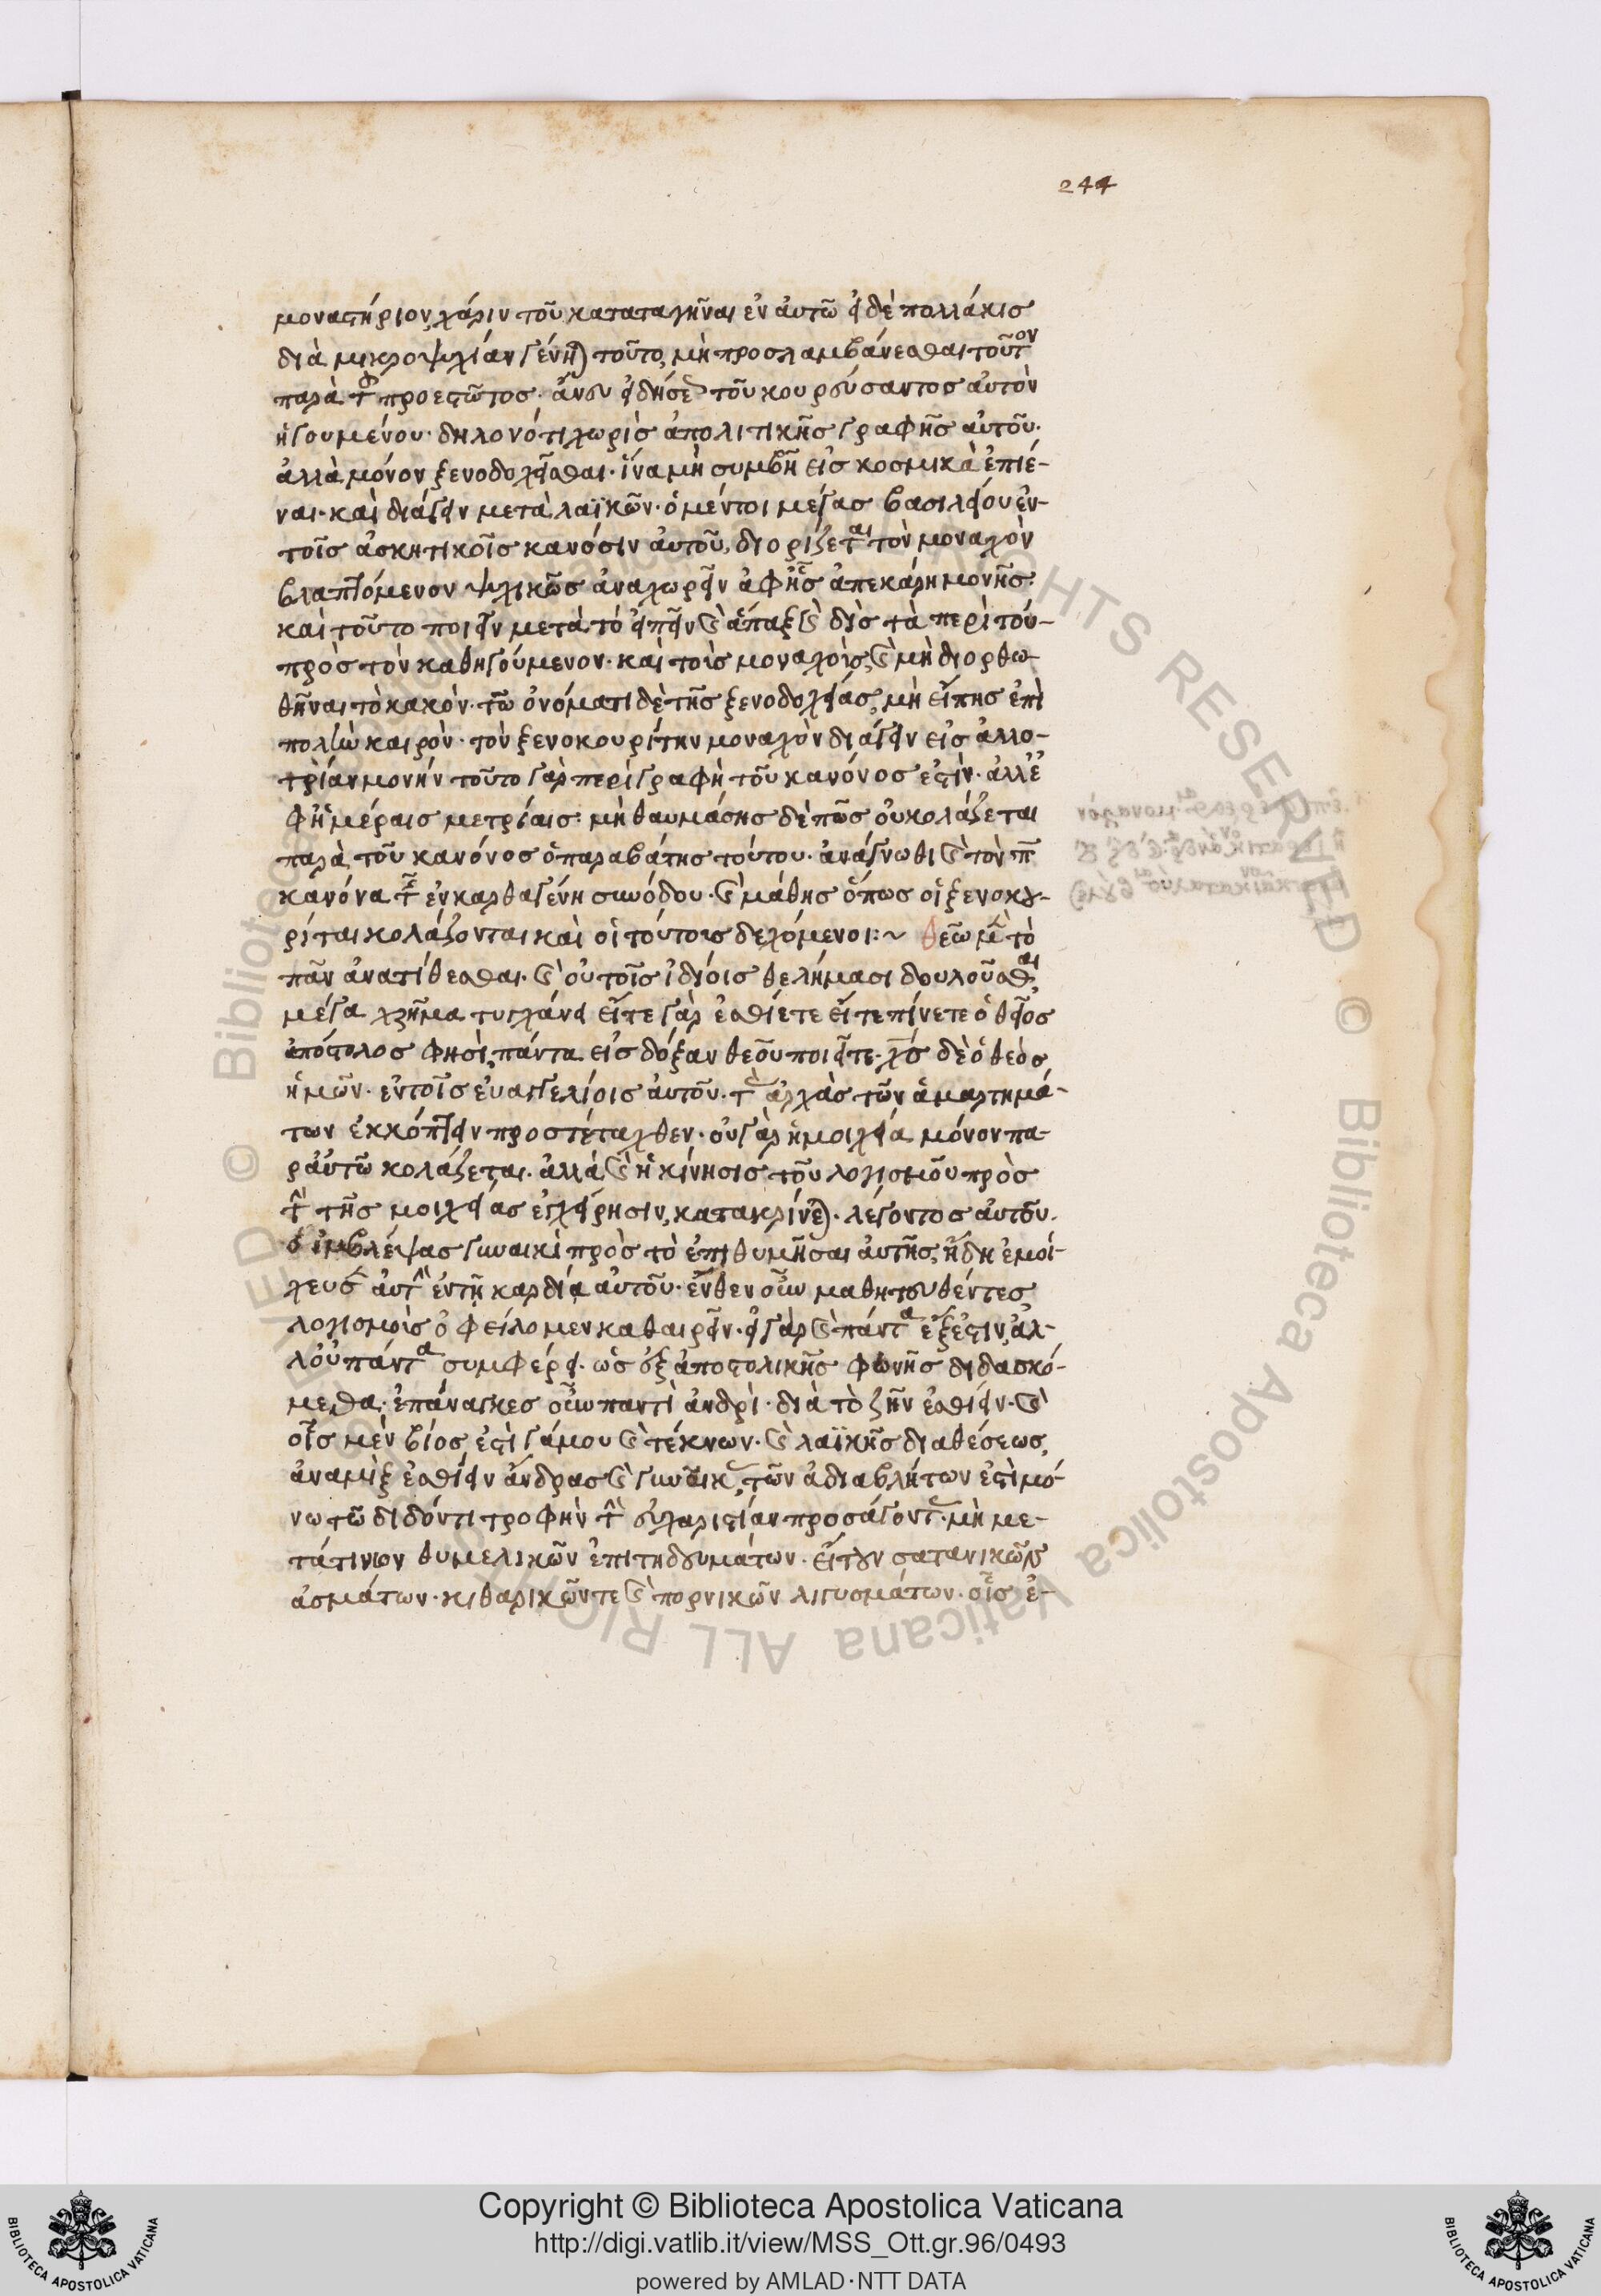 244
μοναστήριον, χάριν τοῦ καταταγῆναι ἐν αὐτῶ εἰ δὲ πολλάκις
διὰ μικροψυχίαν γένηται τοῦτο, μὴ προσλαμβάνεσθαι τοῦτον
παρὰ τοῦ προεστῶτος. ἄνευ εἰδήσεως τοῦ κουρεύσαντος αὐτὸν
ἡγουμένου. δηλονότι χωρὶς ἀπολιτικῆς γραφῆς αὐτοῦ.
ἀλλὰ μόνον ξενοδοχεῖσθαι. ἵνα μὴ συμβῆ εἰς κοσμικὰ ἐπιέ-
ναι. καὶ διάγειν μετὰ λαϊκῶν. ὁ μέντοι μέγας βασίλειος ἐν-
τοῖς ἀσκητικοῖς κανόσιν αὐτοῦ, διορίζεται τὸν μοναχὸν
βλαπτόμενον ψυχικῶς ἀναχωρεῖν ἀφ' ἧς ἀπεκάρη μονῆς.
καὶ τοῦτο ποιεῖν μετὰ τό εἰπεῖν καὶ ἅπαξ καὶ δὶς τὰ περὶ τού-
πρὸς τὸν καθηγούμενον. καὶ τοῖς μοναχοῖς, καὶ μὴ διορθω-
θῆναι τὸ κακὸν. τῶ ὀνόματι δὲ τῆς ξενοδοχείας, μὴ εἴπης ἐπὶ
πολὺν καιρὸν. τὸν ξενοκουρίτην μοναχὸν διάγειν εἰς ἀλλο-
τρίαν μονήν τοῦτο γὰρ περιγραφὴ τοῦ κανόνος ἐστὶν. ἀλλ' ἐ
φ' ἡμέραις μετρίαις: μὴ θαυμάσης δὲ πῶς οὐ κολάζεται
παρὰ τοῦ κανόνος ὁ παραβάτης τούτου. ἀνάγνωθι καὶ τὸν π
κανόνα τῆς ἐν καρθαγένη συνόδου. καὶ μάθης ὅπως οἱ ξενοκου-
ρίται κολάζονται καὶ οἱ τούτοις δεχόμενοι:~ θεῶ μὲν τὸ
πᾶν ἀνατίθεσθαι. καὶ οὐ τοῖς ἰδίοις θελήμασι δουλοῦσθαι,
μέγα χρῆμα τυγχάνει εἴτε γὰρ ἐσθίετε εἴτε πίνετε ὁ θεῖος
ἀπόστολος φησὶ, πάντα εἰς δόξαν θεοῦ ποιεῖτε. χς δὲ ὁ θεὸς
ἡμῶν. ἐν τοῖς εὐαγγελίοις αὐτοῦ. τὰς ἀρχὰς τῶν ἁμαρτημά-
των ἐκκόπτειν προστέταχθεν. οὐ γὰρ ἡ μοιχεία μόνον πα-
ρ' αὐτῶ κολάζεται. ἀλλὰ καὶ ἡ κίνησις τοῦ λογισμοῦ πρὸς
τὴν τῆς μοιχείας ἐγχείρησιν, κατακρίνεται. λέγοντος αὐτοῦ.
ὁ ἐμβλέψας γυναικὶ πρὸς τὸ ἐπιθυμῆσαι αὐτῆς, ἤδη ἐμοί-
χευσεν αὐτὴν ἐν τῇ καρδία αὐτοῦ. ἔνθεν οὖν μαθητευθέντες
λογισμοὶς ὀφείλομεν καθαιρεῖν. εἰ γὰρ καὶ πάντα ἔξεστιν, ἀλ-
λ' οὐ πάντα συμφέρει. ὡς ἐξ ἀποστολικῆς φωνῆς διδασκό-
μεθα. ἐπάναγκες οὖν παντὶ ἀνδρὶ. διὰ τὸ ζῆν ἐσθίειν. καὶ
οἷς μὲν βίος ἐστὶ γάμου καὶ τέκνων. καὶ λαϊκῆς διαθέσεως,
ἀναμὶξ ἐσθίειν ἄνδρας καὶ γυναῖκας, τῶν ἀδιαβλήτων ἐστὶ μό-
νω τῶ διδόντι τροφὴν τὴν εὐχαριστίαν προσάγοντας. μὴ με-
τά τινων θυμελικῶν ἐπιτηδευμάτων. εἴτουν σατανικῶν
ἀσμάτων. κιθαρικῶν τε καὶ πορνικῶν λιγυσμάτων. οἷς ἐ-
Copyright © Biblioteca Apostolica Vaticana
http://digi.vatlib.it/view/MSS_Ott.gr.96/0493
powered by AMLAD·NTT DATA
BIBLIOTECA APOSTOLICA VATICANA
BIBLIOTECA APOSTOLICA VATICANA
© Biblioteca Apostolica Vaticana ALL RIGHTS RESERVED